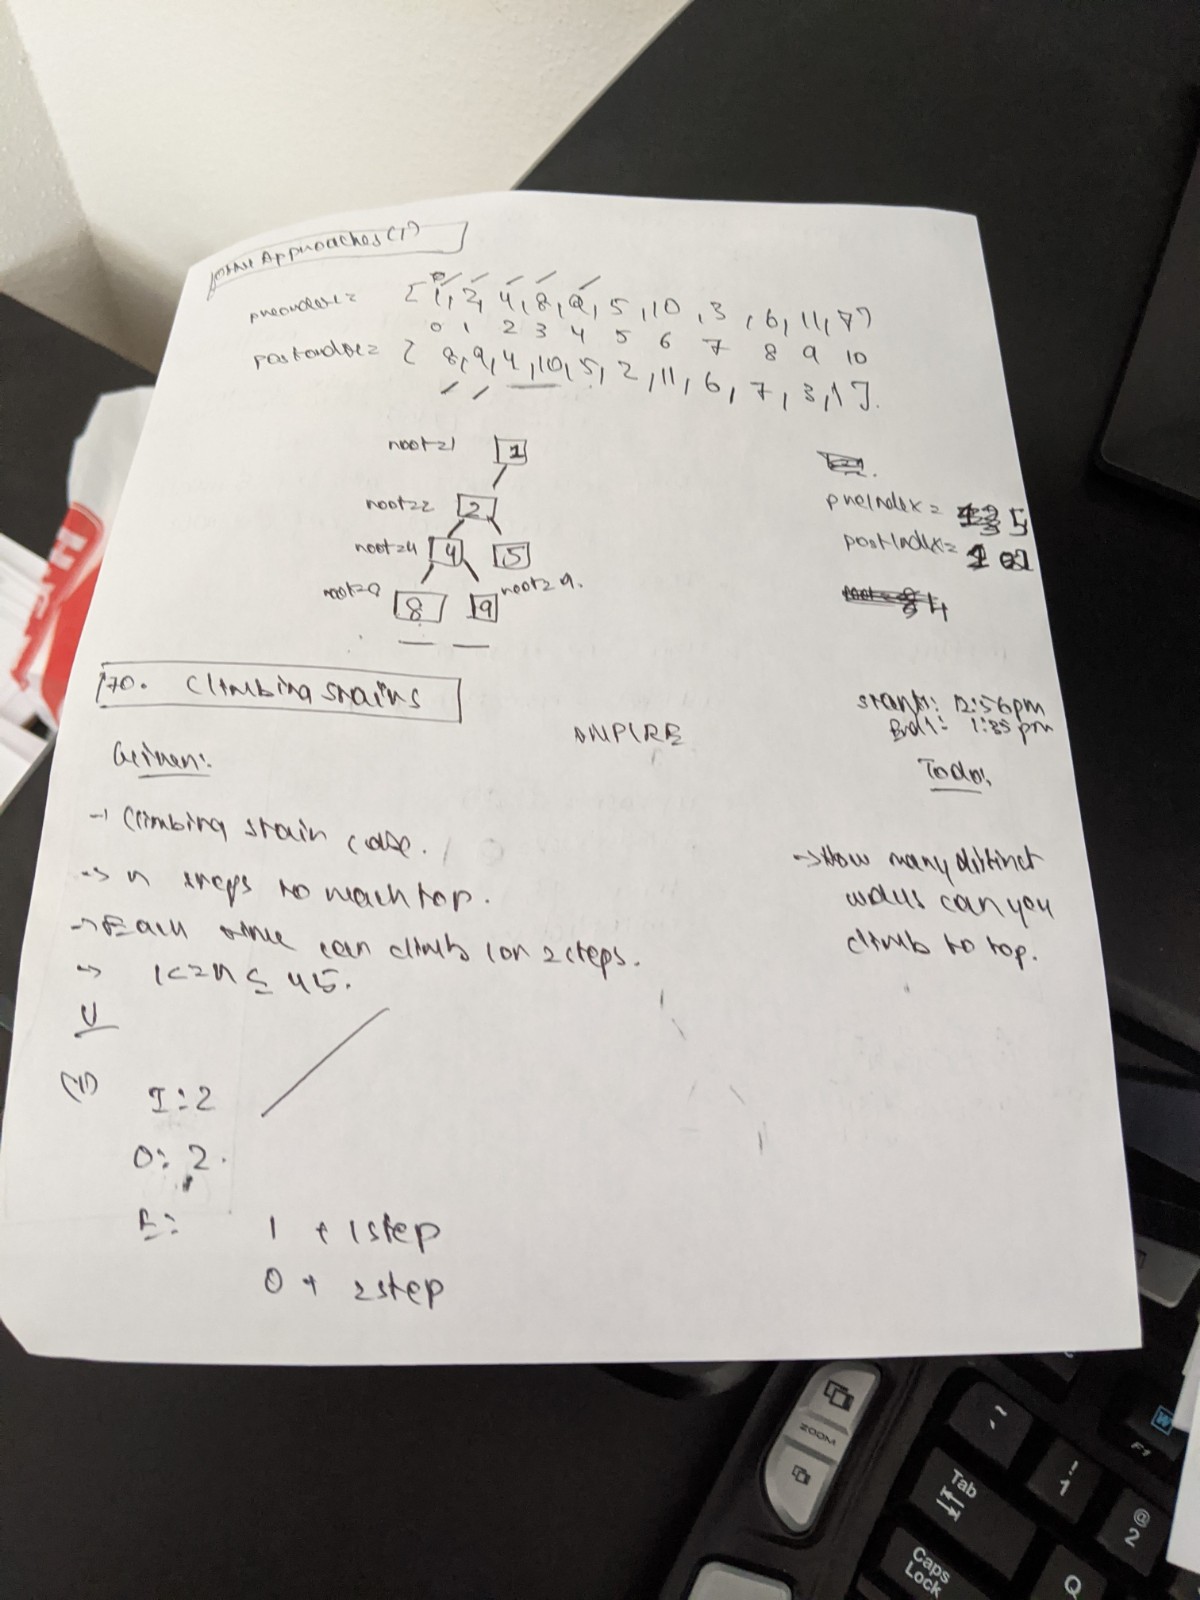 Other Approaches (1)
preorder = [1, 2, 4, 8, 9, 5, 10, 3, 6, 11, 7]
0 1 2 3 4 5 6 7 8 9 10
postorder = [8, 9, 4, 10, 5, 2, 11, 6, 7, 3, 1].
root=1 1
root=2 2
root=4 4 5
8 9 root=9.
preIndex = 5
postIndex=
4
70. Climbing stairs
Start: 12:56pm
End: 1:35 pm
UMPIRE
Given:
Todo:
→ Climbing stair case.
→ n steps to reach top.
→ Each time can climb 1 or 2 steps.
→ 1<=n≤45.
→ How many distinct
ways can you
climb to top.
U
(1)
I: 2
O: 2.
E: 1 + 1step
0 + 2step
ZOOM
Tab
Caps
Lock
!
1
@
2
Q
W
F1
~